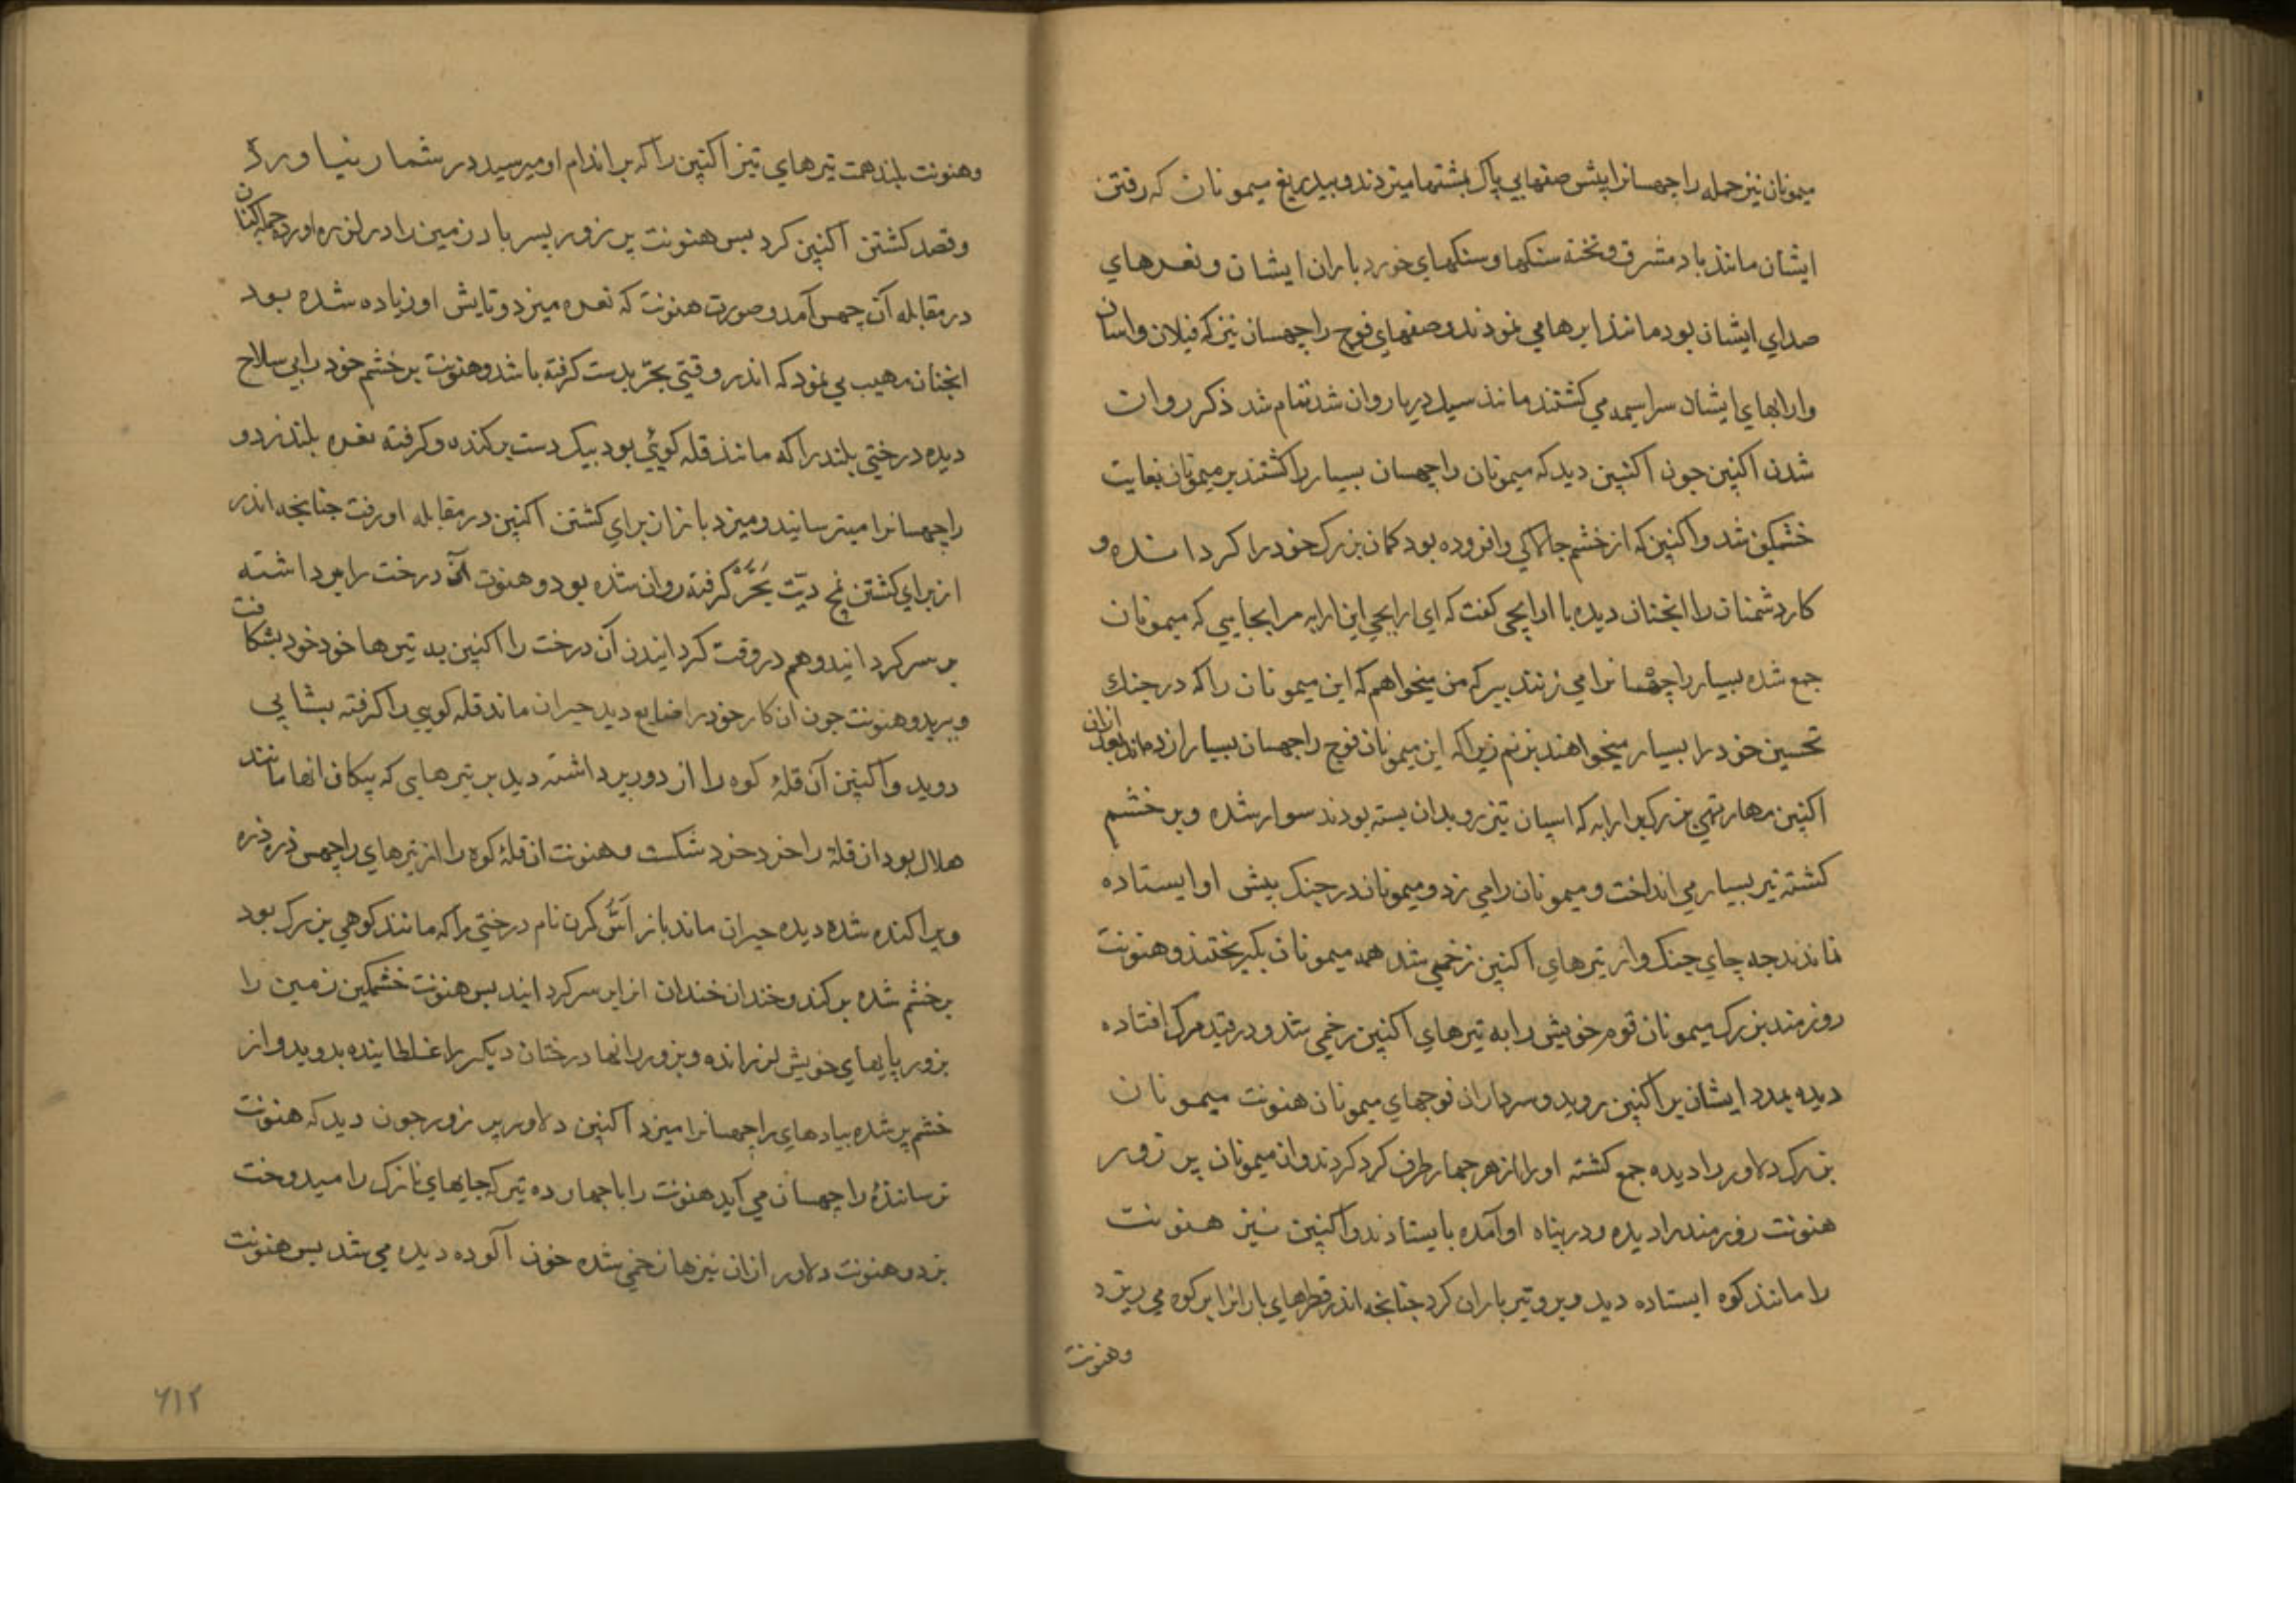 میمونان نیز جمله راچهسانرا پیش صفهایی پاک بمشتها میزدند و بیدریغ میمونان که رفتن
ایشان مانند باد مشرق و تخته سنکها و سنکهای خورد باران ایشان و نعرهای
صدای ایشان بود مانند ابرها می نمودند و صفهای فوج راچهسان نیز که فیلان و اسپان
و ارابهای ایشان سراسیمه می کشتند مانند سیل دریا روان شد تمام شد ذکر روان
شدن اکنپن جون اکنپن دید که میمونان راچهسان بسیار را کشتند بر میمونان بغایت
خشمکین شد و اکنپن که از خشم جالاکی و افزوده بود کمان بزرک خود را کردانیده و
کار دشمنان را انجنان دیده با ارابچی کفت که ای ارابچی این ارابه مرا بجایی که میمونان
جمع شده بسیار راچهسانرا می زنند ببر که من میخواهم که این میمونان را که در جنک
تحسین خود را بسیار میخواهند بزنم زیرا که این میمونان فوج راچهسان بسیار زده اند بعد ازان
اکنپن مهارتهی بزرک بر ارابه که اسپان تیز رو بدان بسته بودند سوار شده و پر خشم
کشته تیر بسیار می انداخت و میمونان را می زد و میمونان در جنک پیش او ایستاده
نماندند جه جای جنک و از تیرهای اکنپن زخمی شد همه میمونان بکریختند و هنونت
زورمند بزرک میمونان قوم خویش را به تیرهای اکنپن زخمی شد و در قید مرک افتاده
دیده بمدد ایشان بر اکنپن بروید و سرداران فوجهای میمونان هنونت میمونان
بزرک دلاور را دیده جمع کشته او را از هر جهار طرف کرد کردند و ان میمونان پر زور
هنونت زورمند را دیده و در پناه او آمده بایستادند و اکنپن نیز هنونت
را مانند کوه ایستاده دید و برو تیر باران کرد جنانجه اندر قطرهای بارانرا بر کوه می ریزد
وهنونت
وهنونت بلند همت تیرهای تیز اکنپن را که بر اندام او میرسید در شمار نیاورد
و قصد کشتن اکنپن کرد پس هنونت پر زور پسر باد زمین را در لرزه اورده حمله کنان
در مقابله آن چهس آمد و صورت هنونت که نعره میزد و تابش او زیاده شده بود
انجنان مهیب می نمود که اندر وقتی بجر بدست کرفته باشد و هنونت پر خشم خود را بی سلاح
دیده درختی بلند را که مانند قله کوئی بود بیک دست بر کنده و کرفته نعره بلند زد و
راچهسانرا میترسانید و میزد باز ان برای کشتن اکنپن در مقابله او رفت جنانجه اندر
از برای کشتن نمچ دیت بجر کرفته روان شده بود و هنونت آن درخت را بر داشته
بر سر کردانید و هم در وقت کردانیدن آن درخت را اکنپن به تیرها خود خود بشکافت
و برید و هنونت جون ان کار خود را ضایع دید حیران ماند قله کوهی را کرفته بشتابی
دوید و اکنپن آن قلهٔ کوه را از دور بر داشته دید بر تیرهای که پیکان انها مانند
هلال بود ان قلهٔ را خرد خرد شکست و هنونت ان قلهٔ کوه را از تیرهای راچهس ذره ذره
و پراکنده شده دیده حیران ماند باز اس کرن نام درختی را که مانند کوهی بزرک بود
پر خشم شده بر کند و خندان خندان انرا بر سر کردانید پس هنونت خشمکین زمین را
بزور پایهای خویش لرزانده و بزور رانها درختان دیکر را غلطاینده بدوید و از
خشم پر شده پیادهای راچهسانرا میزد اکنپن دلاور پر زور جون دید که هنونت
ترسانندهٔ راچهسان می آید هنونت را با جهارده تیر که جایهای نازک را میدوخت
بزد و هنونت دلاور ازان تیزها زخمی شده خون آلوده دیده می شد پس هنونت
۶۱۲